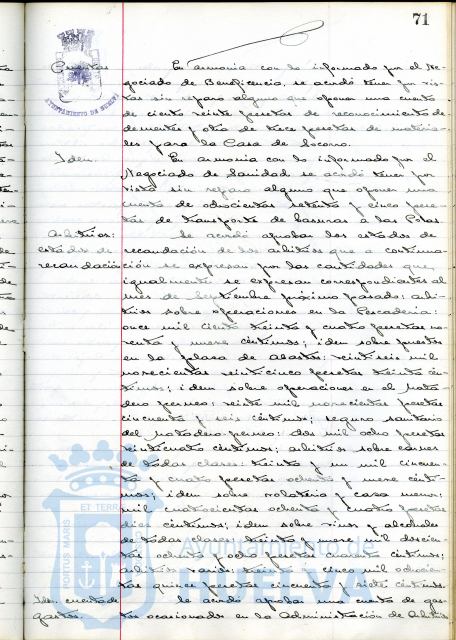 71
Cuentas
En armonia con lo informado por el Ne-
gociado de Beneficencia, se acordó tener por vis-
tas sin reparo alguno que oponer una cuenta
de ciento veinte pesetas de reconocimiento de
dementes y otra de trece pesetas de materia-
les para la Casa de Socorro.
AYUNTAMIENTO DE HUELVA
Idem.
En armonia con lo informado por el
Negociado de Sanidad se acordó tener por
vista sin reparo alguno que oponer una
cuenta de ochocientas setenta y cinco pese-
tas de transporte de basuras a las Polas.
Arbitrios:
estados de
recaudación
Se acordó aprobar los estados de
recaudación de los arbitrios que a continua-
ción se expresan por las cantidades que
igualmente se expresan correspondientes al
mes de Septiembre próximo pasado: arbi-
trios sobre operaciones en la Pescaderia:
once mil ciento treinta y cuatro pesetas no-
venta y nueve céntimos; idem sobre puestos
en la plaza de abastos: veintiseis mil
novecientas veinticinco pesetas treinta cén-
timos; idem sobre operaciones en el Mata-
dero perneo: veinte mil novecientas pesetas
cincuenta y seis céntimos; seguro sanitario
del matadero perneo: dos mil ocho pesetas
veinticuatro céntimos; arbitrios sobre carnes
de todas clases: treinta y un mil cincuen-
ta y cuatro pesetas ochenta y nueve cénti-
mos; idem sobre volateria y caza menor:
mil cuatrocientas ochenta y cuatro pesetas
diez céntimos; idem sobre vinos y alcoholes
de todas clases: treinta y nueve mil doscien-
tas ochenta y ocho pesetas cuarenta céntimos;
arbitrios varios: treinta y cinco mil ochocien-
tas quince pesetas cincuenta y siete céntimos.
Idem. cuenta de
gastos.
Se acordó aprobar una cuenta de gas-
tos ocasionados en la Administración de Arbitrios
PORTUS MARIS ET TERRAE
Ayuntamiento de
HUELVA